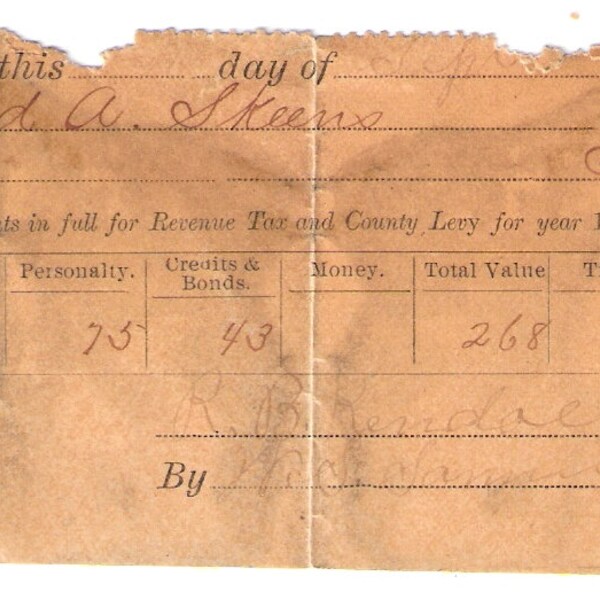 this day of Sep
d A. Skeens
ts in full for Revenue Tax and County Levy for year 1
Personalty. Credits & Bonds. Money. Total Value T
75 43 268
R. B. Kendal
By